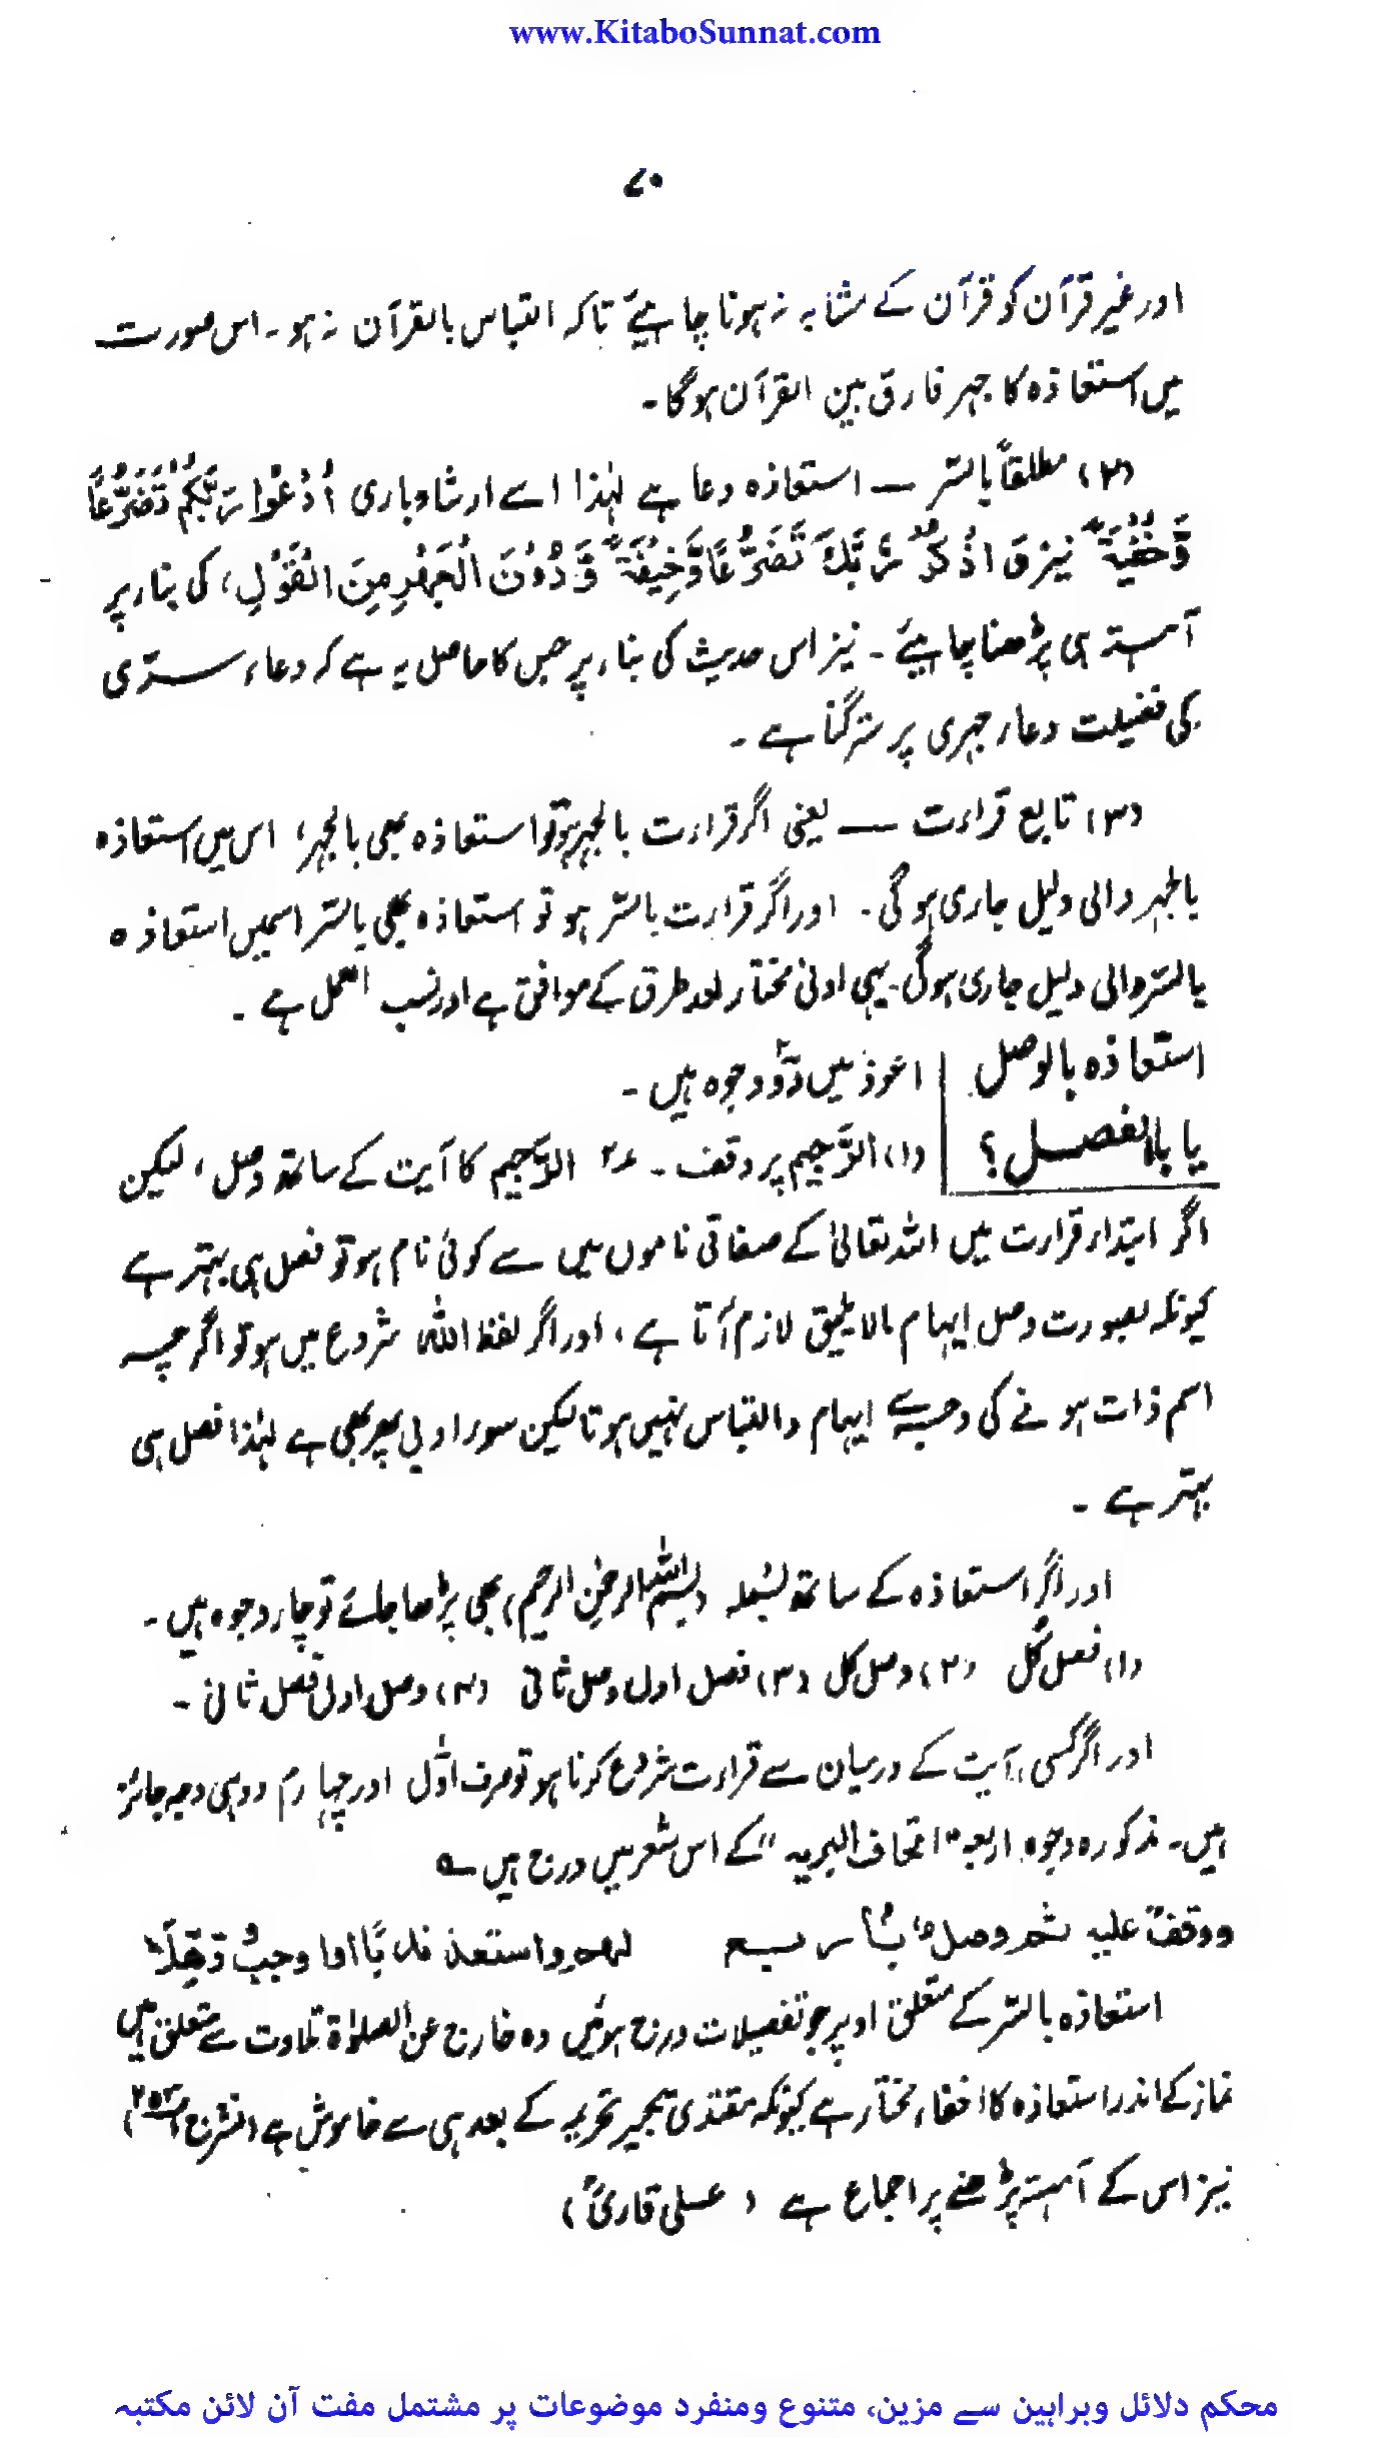 www.KitaboSunnat.com
۷۰
اور غیر قرآن کو قرآن کے مشابہ نہ ہونا چاہیئے تاکہ التباس بالقرآن نہ ہو ۔ اس صورت
میں استعاذہ کا جہر فارق بین القرآن ہوگا۔
(۲) مطلقاً بالسّر — استعاذہ دعا ہے لہٰذا اسے ارشاد باری اُدْعُوْا رَبَّكُمْ تَضَرُّعًا
وَّخُفْيَةً نیز وَ اذْكُرْ رَّبَّكَ تَضَرُّعًا وَّخِيْفَةً وَّدُوْنَ الْجَهْرِ مِنَ الْقَوْلِ، کی بناء پر
آہستہ ہی پڑھنا چاہیئے ۔ نیز اس حدیث کی بناء پر جس کا حاصل یہ ہے کہ دعاء سرّی
کی فضیلت دعاء جہری پر ستر گنا ہے ۔
(۳) تابع قراءت — یعنی اگر قراءت بالجہر ہو تو استعاذہ بھی بالجہر، اس میں استعاذہ
بالجہر والی دلیل جاری ہوگی ۔ اور اگر قراءت بالسّر ہو تو استعاذہ بھی بالسّر اسمیں استعاذہ
بالسّر والی دلیل جاری ہوگی ۔ یہی اولیٰ مختار اور طرق کے موافق ہے اور نسب العمل ہے ۔
استعاذہ بالوصل | اعوذ میں دوٗ وجوہ ہیں ۔
یا بالفصل ؟ | (۱) الرَّجیم پر وقف ۔ ۲؎ الرَّجیم کا آیت کے ساتھ وصل ، لیکن
اگر ابتداء قراءت میں اللہ تعالیٰ کے صفاتی ناموں میں سے کوئی نام ہو تو فصل ہی بہتر ہے
کیونکہ بصورت وصل ایہام مالایلیق لازم آتا ہے ، اور اگر لفظ اللّٰہ شروع میں ہو تو اگرچہ
اسم ذات ہونے کی وجہ سے ایہام والتباس نہیں ہوتا لیکن سوء ادبی پھر بھی ہے لہٰذا فصل ہی
بہتر ہے ۔
اور اگر استعاذہ کے ساتھ بسملہ (بسم اللّٰہ الرحمٰن الرحیم) بھی پڑھا جائے تو چار وجوہ ہیں ۔
(۱) فصل کُل (۲) وصل کل (۳) فصل اول وصل ثانی (۴) وصل اولیٰ فصل ثانی ۔
اور اگر کسی آیت کے درمیان سے قراءت شروع کرنا ہو تو صرف اوّل اور چہارم دو ہی وجہ جائز
ہیں ۔ مذکورہ وجوہ اربعہ "اتحاف البریہ" کے اس شعر میں درج ہیں ؎
ووقفٌ علیہ ثم وصلٌ باربع لہم واستعذ
استعاذہ بالسّر کے متعلق اوپر جو تفصیلات درج ہوئیں وہ خارج عن الصلوٰۃ تلاوت سے متعلق ہیں
نماز کے اندر استعاذہ کا اخفاء مختار ہے کیونکہ مقتدی تکبیر تحریمہ کے بعد ہی سے خاموش ہے (نشر ج۱ ص۲۵۳)
نیز اس کے آہستہ پڑھنے پر اجماع ہے (علی قاریؒ)
محکم دلائل وبراہین سے مزین، متنوع ومنفرد موضوعات پر مشتمل مفت آن لائن مکتبہ